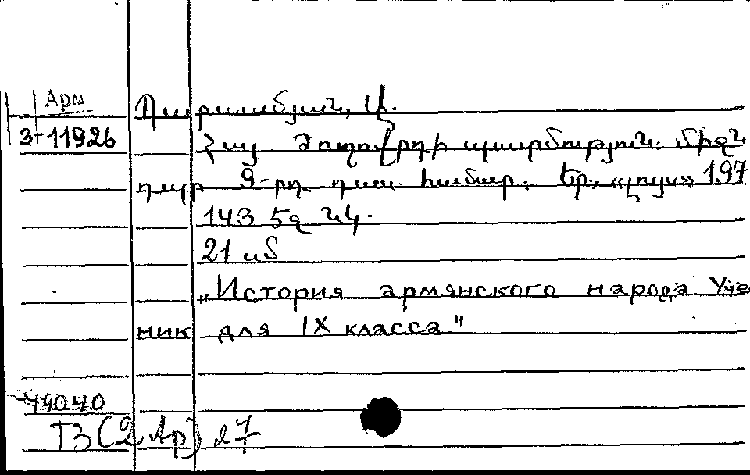 Арм.
3-11926
Պարսամյան, Վ.
Հայ ժողովրդի պատմություն. միջն
դար 9-րդ դաս. համար. Եր., «Լույս» 197
143 էջ նկ.
21 սմ
„История армянского народа Уче
ник для IX класса"
74040
ТЗ(2Ар)